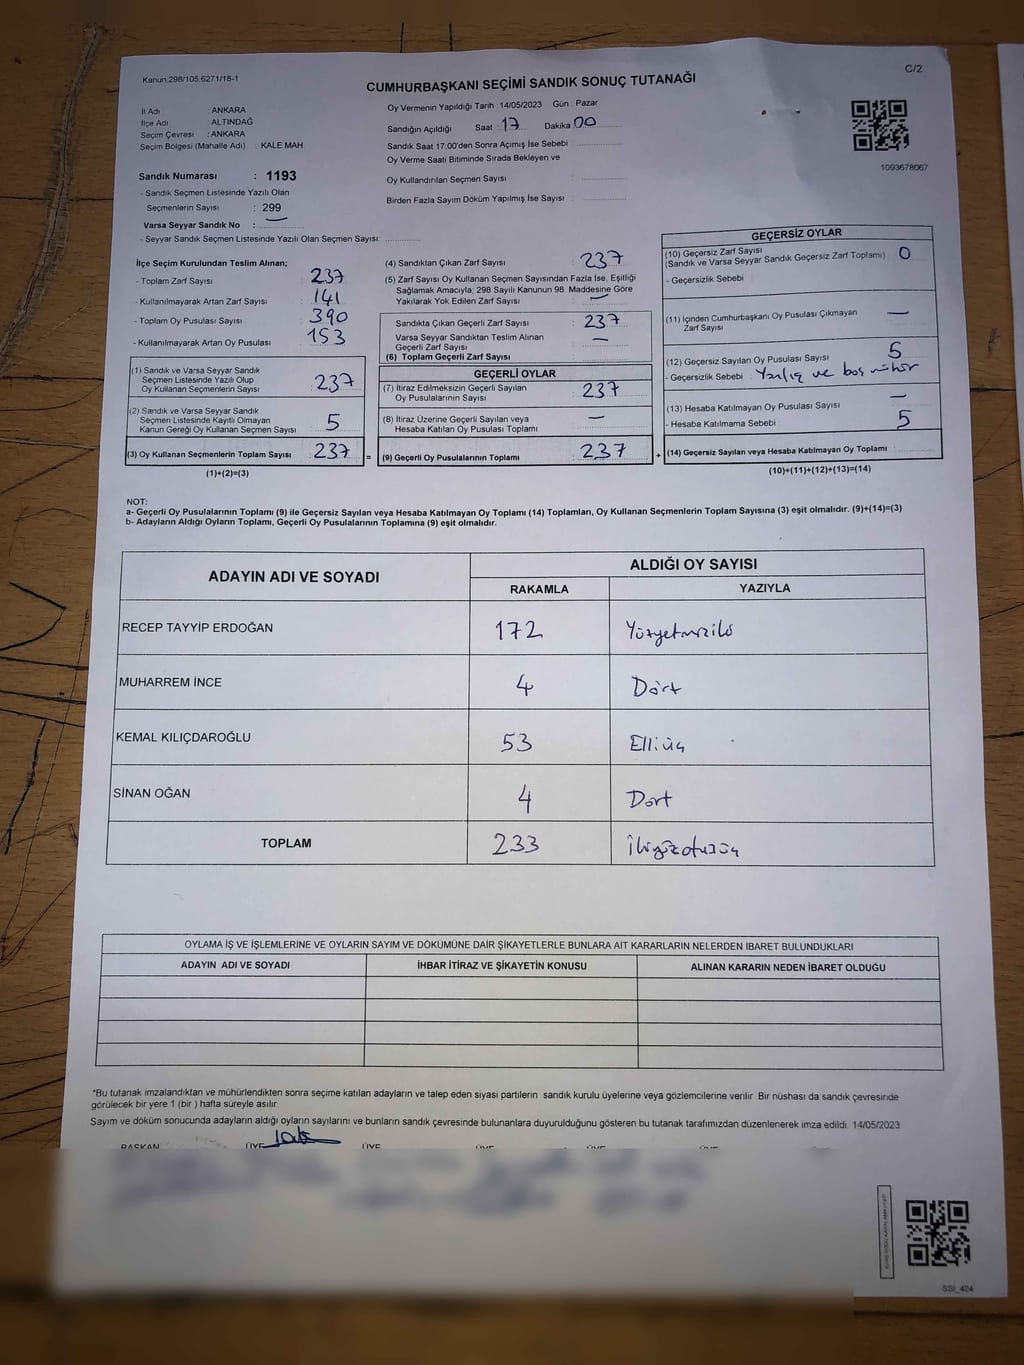 Kanun:298/105.6271/18-1
C/2
CUMHURBAŞKANI SEÇİMİ SANDIK SONUÇ TUTANAĞI
İl Adı : ANKARA
İlçe Adı : ALTINDAĞ
Seçim Çevresi : ANKARA
Seçim Bölgesi (Mahalle Adı) : KALE MAH.
Sandık Numarası : 1193
- Sandık Seçmen Listesinde Yazılı Olan
Seçmenlerin Sayısı : 299
Varsa Seyyar Sandık No : —
- Seyyar Sandık Seçmen Listesinde Yazılı Olan Seçmen Sayısı:
Oy Vermenin Yapıldığı Tarih : 14/05/2023 Gün : Pazar
Sandığın Açıldığı Saat 17 Dakika 00
Sandık Saat 17:00'den Sonra Açımış İse Sebebi
Oy Verme Saati Bitiminde Sırada Bekleyen ve
Oy Kullandırılan Seçmen Sayısı :
Birden Fazla Sayım Döküm Yapılmış İse Sayısı :
1093678067
İlçe Seçim Kurulundan Teslim Alınan;
- Toplam Zarf Sayısı : 237
- Kullanılmayarak Artan Zarf Sayısı : 141
- Toplam Oy Pusulası Sayısı : 390
- Kullanılmayarak Artan Oy Pusulası : 153
(1) Sandık ve Varsa Seyyar Sandık
Seçmen Listesinde Yazılı Olup
Oy Kullanan Seçmenlerin Sayısı : 237
(2) Sandık ve Varsa Seyyar Sandık
Seçmen Listesinde Kayıtlı Olmayan
Kanun Gereği Oy Kullanan Seçmen Sayısı : 5
(3) Oy Kullanan Seçmenlerin Toplam Sayısı : 237 =
(1)+(2)=(3)
(4) Sandıktan Çıkan Zarf Sayısı : 237
(5) Zarf Sayısı Oy Kullanan Seçmen Sayısından Fazla İse, Eşitliği
Sağlamak Amacıyla, 298 Sayılı Kanunun 98. Maddesine Göre
Yakılarak Yok Edilen Zarf Sayısı : —
Sandıkta Çıkan Geçerli Zarf Sayısı : 237
Varsa Seyyar Sandıktan Teslim Alınan
Geçerli Zarf Sayısı : —
(6) Toplam Geçerli Zarf Sayısı :
GEÇERLİ OYLAR
(7) İtiraz Edilmeksizin Geçerli Sayılan
Oy Pusulalarının Sayısı : 237
(8) İtiraz Üzerine Geçerli Sayılan veya
Hesaba Katılan Oy Pusulası Toplamı : —
(9) Geçerli Oy Pusulalarının Toplamı : 237 +
GEÇERSİZ OYLAR
(10) Geçersiz Zarf Sayısı
(Sandık ve Varsa Seyyar Sandık Geçersiz Zarf Toplamı) : 0
- Geçersizlik Sebebi :
(11) İçinden Cumhurbaşkanı Oy Pusulası Çıkmayan
Zarf Sayısı : —
(12) Geçersiz Sayılan Oy Pusulası Sayısı : 5
- Geçersizlik Sebebi : Yanlış ve boş mühür
(13) Hesaba Katılmayan Oy Pusulası Sayısı : —
- Hesaba Katılmama Sebebi : 5
(14) Geçersiz Sayılan veya Hesaba Katılmayan Oy Toplamı :
(10)+(11)+(12)+(13)=(14)
NOT:
a- Geçerli Oy Pusulalarının Toplamı (9) ile Geçersiz Sayılan veya Hesaba Katılmayan Oy Toplamı (14) Toplamları, Oy Kullanan Seçmenlerin Toplam Sayısına (3) eşit olmalıdır. (9)+(14)=(3)
b- Adayların Aldığı Oyların Toplamı, Geçerli Oy Pusulalarının Toplamına (9) eşit olmalıdır.
ADAYIN ADI VE SOYADI
ALDIĞI OY SAYISI
RAKAMLA YAZIYLA
RECEP TAYYİP ERDOĞAN 172 Yüzyetmişiki
MUHARREM İNCE 4 Dört
KEMAL KILIÇDAROĞLU 53 Elliüç
SİNAN OĞAN 4 Dört
TOPLAM 233 İkiyüzotuzüç
OYLAMA İŞ VE İŞLEMLERİNE VE OYLARIN SAYIM VE DÖKÜMÜNE DAİR ŞİKAYETLERLE BUNLARA AİT KARARLARIN NELERDEN İBARET BULUNDUKLARI
ADAYIN ADI VE SOYADI İHBAR İTİRAZ VE ŞİKAYETİN KONUSU ALINAN KARARIN NEDEN İBARET OLDUĞU
*Bu tutanak imzalandıktan ve mühürlendikten sonra seçime katılan adayların ve talep eden siyasi partilerin sandık kurulu üyelerine veya gözlemcilerine verilir. Bir nüshası da sandık çevresinde
görülecek bir yere 1 (bir ) hafta süreyle asılır.
Sayım ve döküm sonucunda adayların aldığı oyların sayılarını ve bunların sandık çevresinde bulunanlara duyurulduğunu gösteren bu tutanak tarafımızdan düzenlenerek imza edildi. 14/05/2023
BAŞKAN ÜYE ÜYE ÜYE ÜYE ÜYE
SSI_424